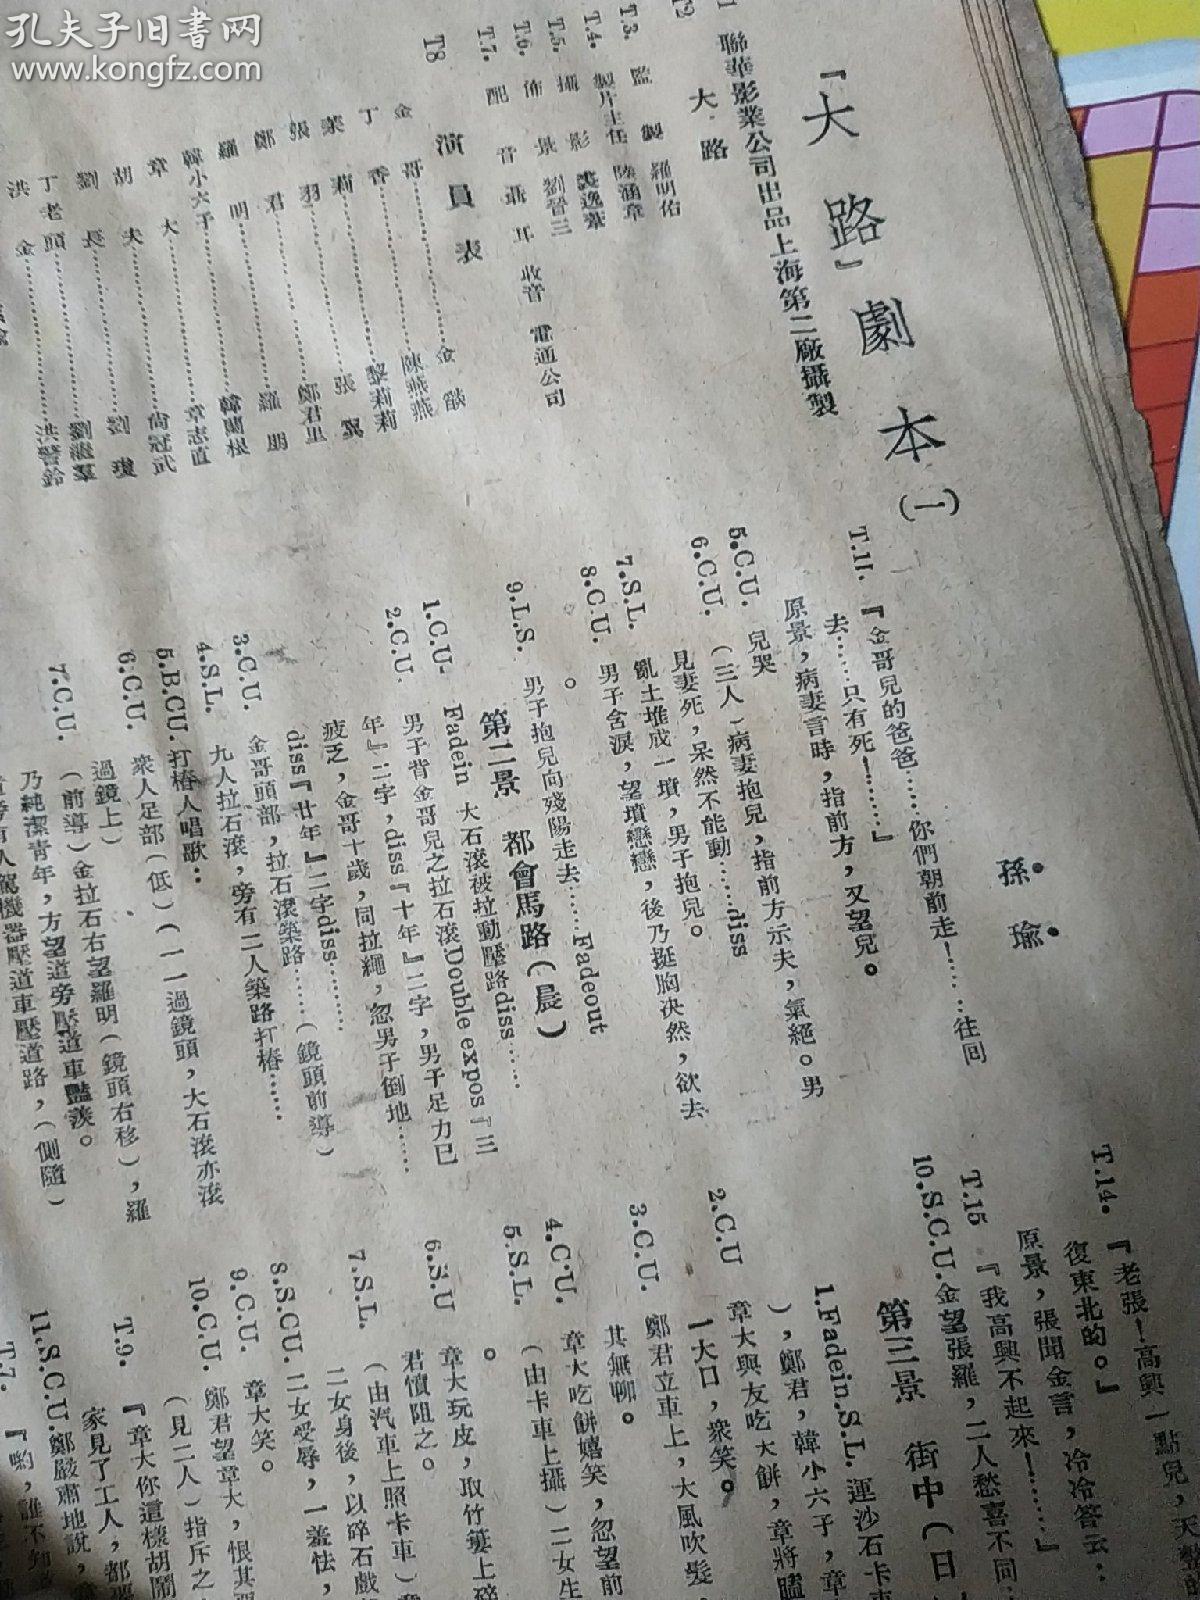 孔夫子旧书网
www.kongfz.com
『大路』劇本(一)
孫瑜
聯華影業公司出品上海第二廠攝製
大路
T.3. 監製 羅明佑
T.4. 製片主任 陸涵章
T.5. 攝影 裘逸葦
T.6. 佈景 劉晉三
T.7. 配音聶耳 收音 電通公司
T8 演員表
金哥………金燄
丁香………陳燕燕
茉莉………黎莉莉
張羽………張翼
鄭君………鄭君里
羅明………羅朋
韓小六子………韓蘭根
章大………章志直
胡夫………尙冠武
劉長………劉瓊
丁老頭………劉繼羣
洪金………洪警鈴
T.11. 『金哥兒的爸爸……你們朝前走!……往回
去……只有死!……』
原景,病妻言時,指前方,又望兒。
5.C.U. 兒哭
6.C.U. (三人)病妻抱兒,指前方示夫,氣絕。男
見妻死,呆然不能動……diss
7.S.L. 亂土堆成一墳,男子抱兒。
8.C.U. 男子含淚,望墳戀戀,後乃挺胸決然,欲去
。
9.L.S. 男子抱兒向殘陽走去……Fadeout
第二景 都會馬路(晨)
1.C.U. Fadein 大石滚被拉動壓路diss……
2.C.U. 男子背金哥兒之拉石滚Double expos『三
年』二字,diss『十年』二字,男子足力已
疲乏,金哥十歲,同拉繩,忽男子倒地……
diss『廿年』二字diss…………
3.C.U. 金哥頭部,拉石滚築路……(鏡頭前導)
4.S.L. 九人拉石滚,旁有二人築路打樁……
5.B.CU.打樁人唱歌..
6.C.U. 衆人足部(低)(一一過鏡頭,大石滚亦滚
過鏡上)
7.C.U. (前導)金拉石右望羅明(鏡頭右移),羅
乃純潔靑年,方望道旁壓道車豔羨。
旁有人駕機器壓道車壓道路,(側隨)
T.14. 『老張!高興一點兒,天整
復東北的。』
原景,張聞金言,冷冷答云,
T.15 『我高興不起來!……』
10.S.C.U.金望張羅,二人愁喜不同
第三景 街中(日
1.Fadein.S.L. 運沙石卡車
),鄭君,韓小六子,章
2.C.U 章大與友吃大餅,章將
一大口,衆笑。
3.C.U. 鄭君立車上,大風吹髮,
其無聊。
4.C.U. 章大吃餅嬉笑,忽望前
5.S.L. (由卡車上攝)二女生
。
6.S.U 章大玩皮,取竹簍上碎
君憤阻之。
7.S.L. (由汽車上照卡車)章
二女身後,以碎石戲
8.S.CU.二女受辱,一羞怯,
9.C.U. 章大笑。
10.C.U. 鄭君望章大,恨其
(見二人)指斥之
T.9. 『章大你這樣胡鬧
家見了工人,都要
11.S.C.U.鄭嚴肅地說,章
T.7. 『喲,誰不知